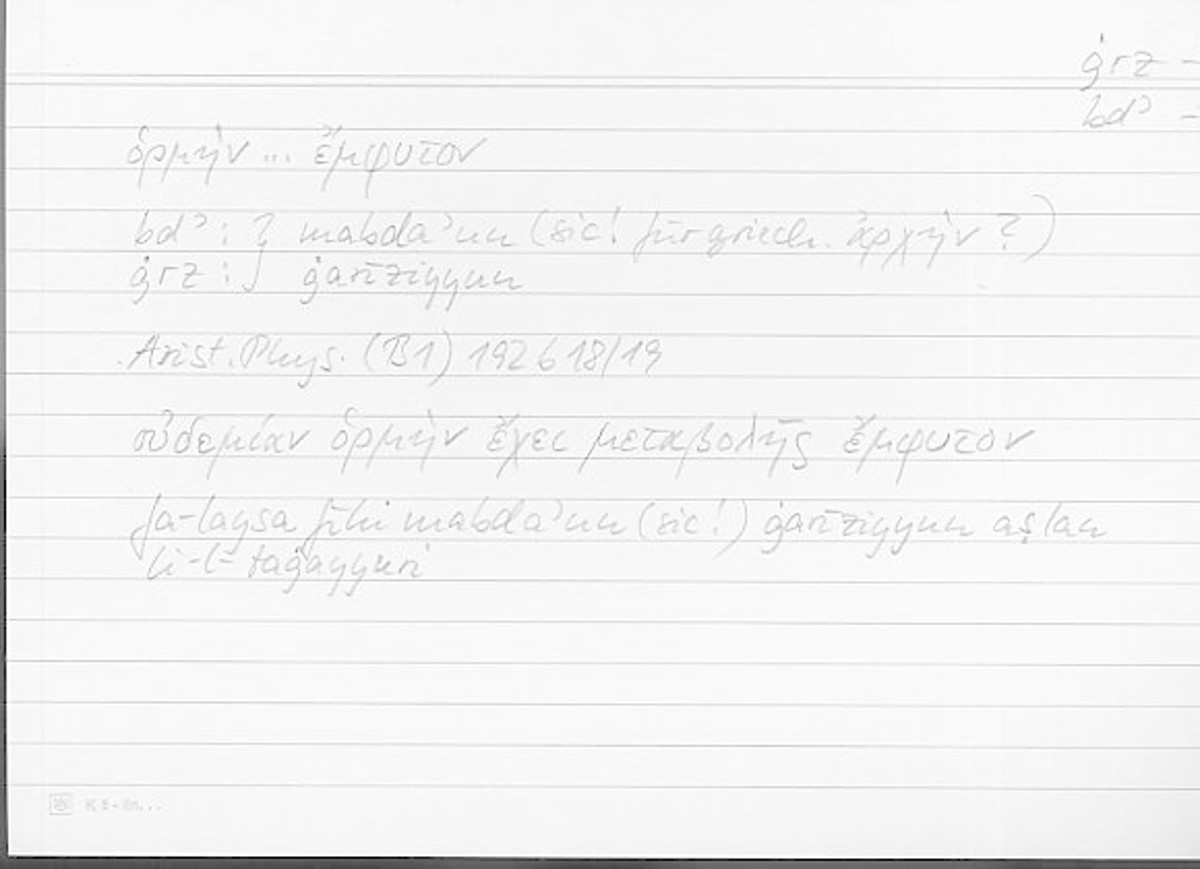 ġrz –
bdʾ –
ὁρμὴν ... ἔμφυτον
bdʾ : } mabdaʾun (sic! für griech. ἀρχήν ?)
ġrz : } ġarīziyyun
Arist. Phys. (B1) 192 b 18/19
οὐδεμίαν ὁρμὴν ἔχει μεταβολῆς ἔμφυτον
fa-laysa fīhi mabdaʾun (sic!) ġarīziyyun aṣlan
li-l-taġayyuri